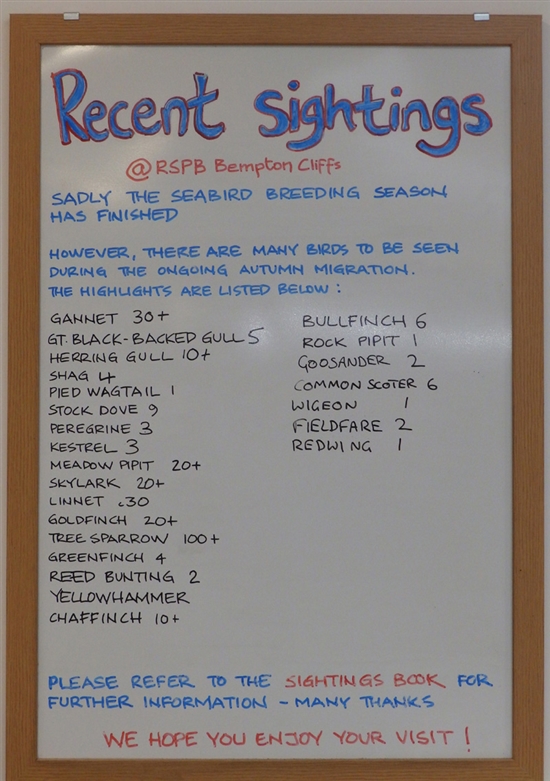 Recent sightings
@ RSPB Bempton Cliffs
SADLY THE SEABIRD BREEDING SEASON
HAS FINISHED
HOWEVER, THERE ARE MANY BIRDS TO BE SEEN
DURING THE ONGOING AUTUMN MIGRATION.
THE HIGHLIGHTS ARE LISTED BELOW :
GANNET 30+
GT. BLACK-BACKED GULL 5
HERRING GULL 10+
SHAG 4
PIED WAGTAIL 1
STOCK DOVE 9
PEREGRINE 3
KESTREL 3
MEADOW PIPIT 20+
SKYLARK 20+
LINNET c30
GOLDFINCH 20+
TREE SPARROW 100+
GREENFINCH 4
REED BUNTING 2
YELLOWHAMMER
CHAFFINCH 10+
BULLFINCH 6
ROCK PIPIT 1
GOOSANDER 2
COMMON SCOTER 6
WIGEON 1
FIELDFARE 2
REDWING 1
PLEASE REFER TO THE SIGHTINGS BOOK FOR
FURTHER INFORMATION - MANY THANKS
WE HOPE YOU ENJOY YOUR VISIT !